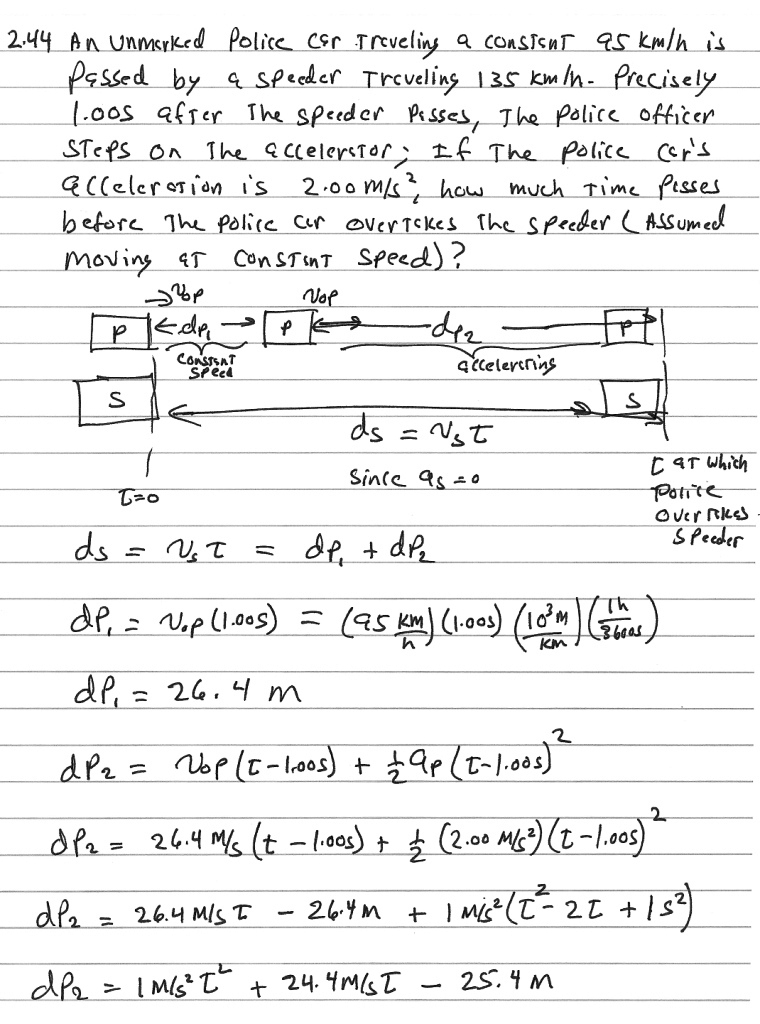 2.44 An unmarked Police car traveling a constant 95 km/h is
passed by a speeder traveling 135 km/h. Precisely
1.00s after the speeder passes, the police officer
steps on the accelerator; If the police car's
acceleration is 2.00 m/s², how much time passes
before the police car overtakes the speeder (Assumed
moving at constant speed)?
→ v₀p v₀p
P dp₁ P dp₂ P
constant speed accelerating
S S
ds = vₛt
since aₛ = 0
t=0
t at which
police
overtakes
speeder
ds = vₛt = dp₁ + dp₂
dp₁ = v₀p (1.00s) = (95 km/h) (1.00s) (10³m/km) (1h/3600s)
dp₁ = 26.4 m
dp₂ = v₀p (t-1.00s) + ½ ap (t-1.00s)²
dp₂ = 26.4 m/s (t - 1.00s) + ½ (2.00 m/s²) (t-1.00s)²
dp₂ = 26.4 m/s t - 26.4 m + 1 m/s² (t² - 2t + 1s²)
dp₂ = 1 m/s² t² + 24.4 m/s t - 25.4 m